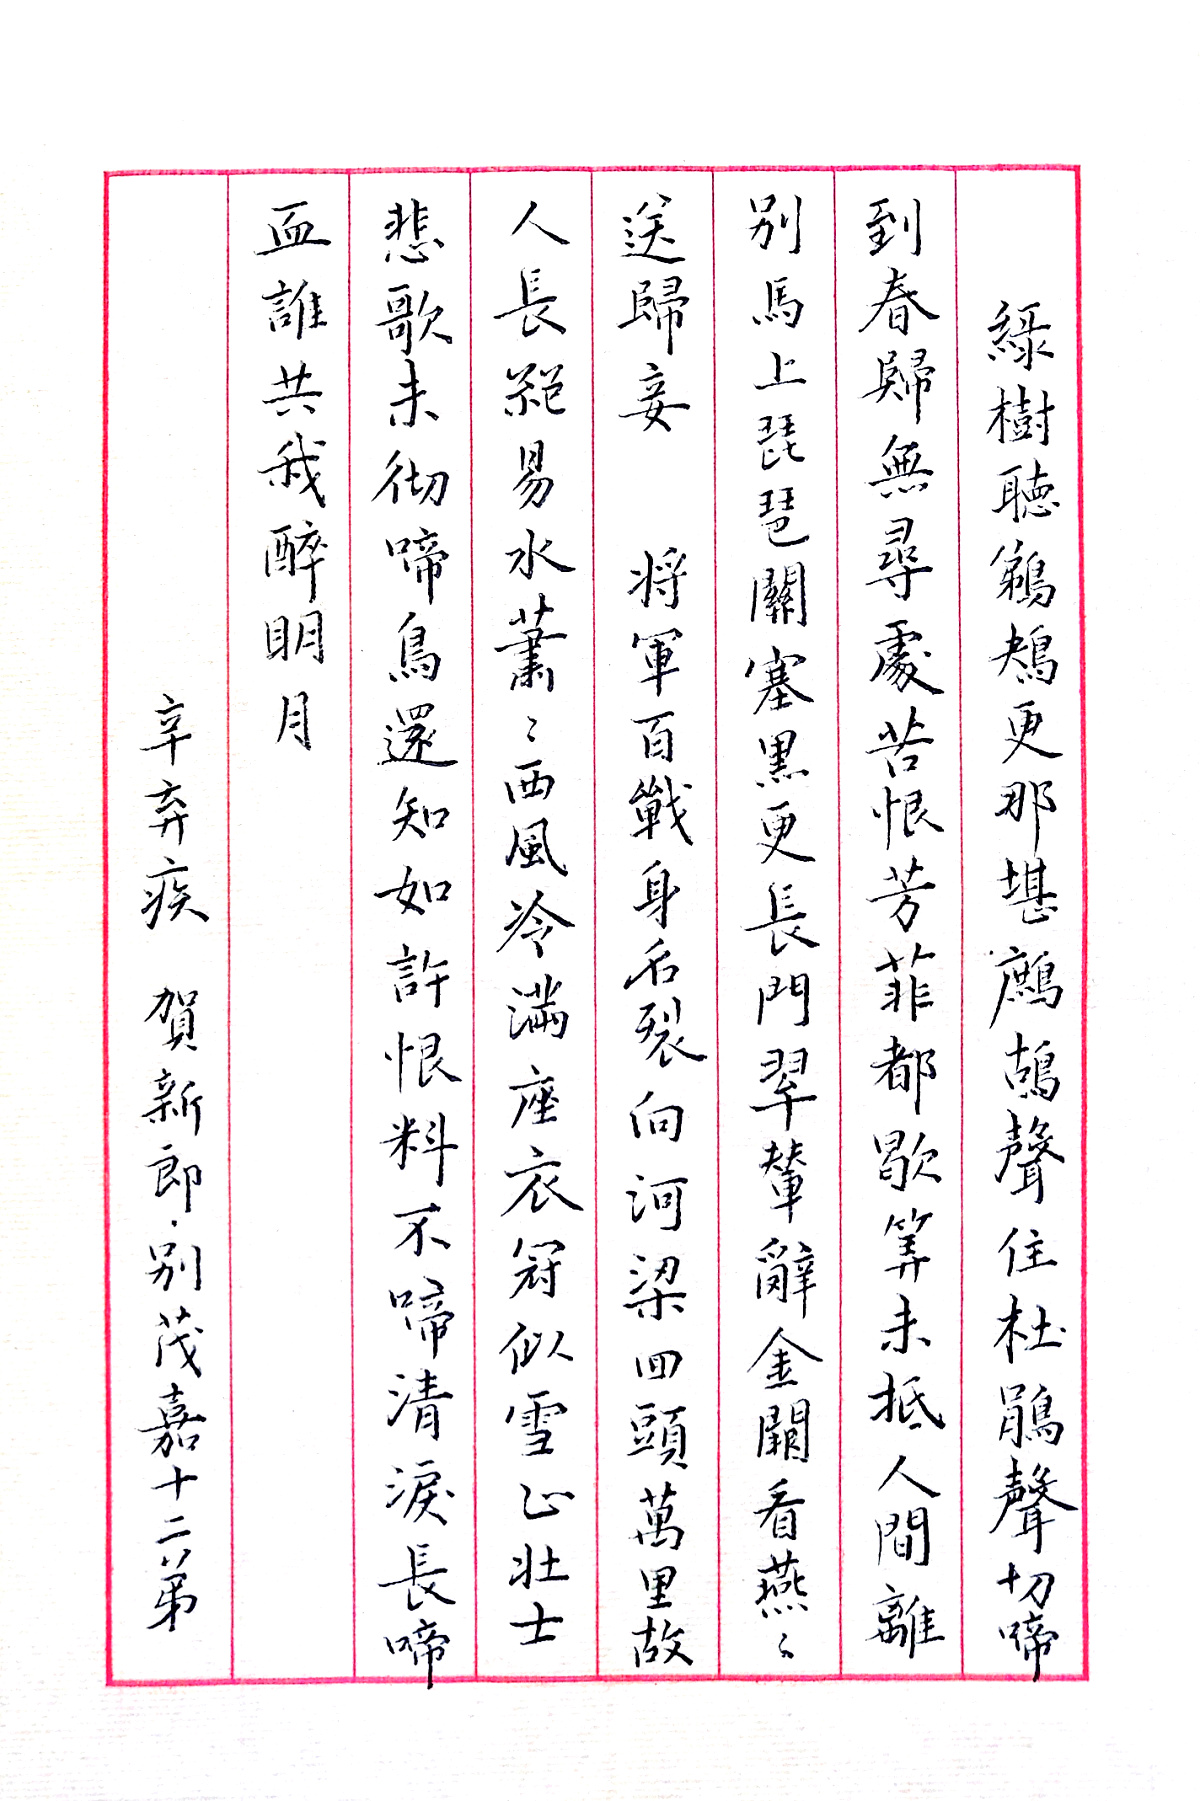 綠樹聽鵜鴂更那堪鷓鴣聲住杜鵑聲切啼
到春歸無尋處苦恨芳菲都歇算未抵人間離
別馬上琵琶關塞黑更長門翠輦辭金闕看燕〻
送歸妾　將軍百戰身名裂向河梁回頭萬里故
人長絕易水蕭〻西風冷滿座衣冠似雪正壯士
悲歌未彻啼鳥還知如許恨料不啼清淚長啼
血誰共我醉明月
辛弃疾　賀新郎·別茂嘉十二弟